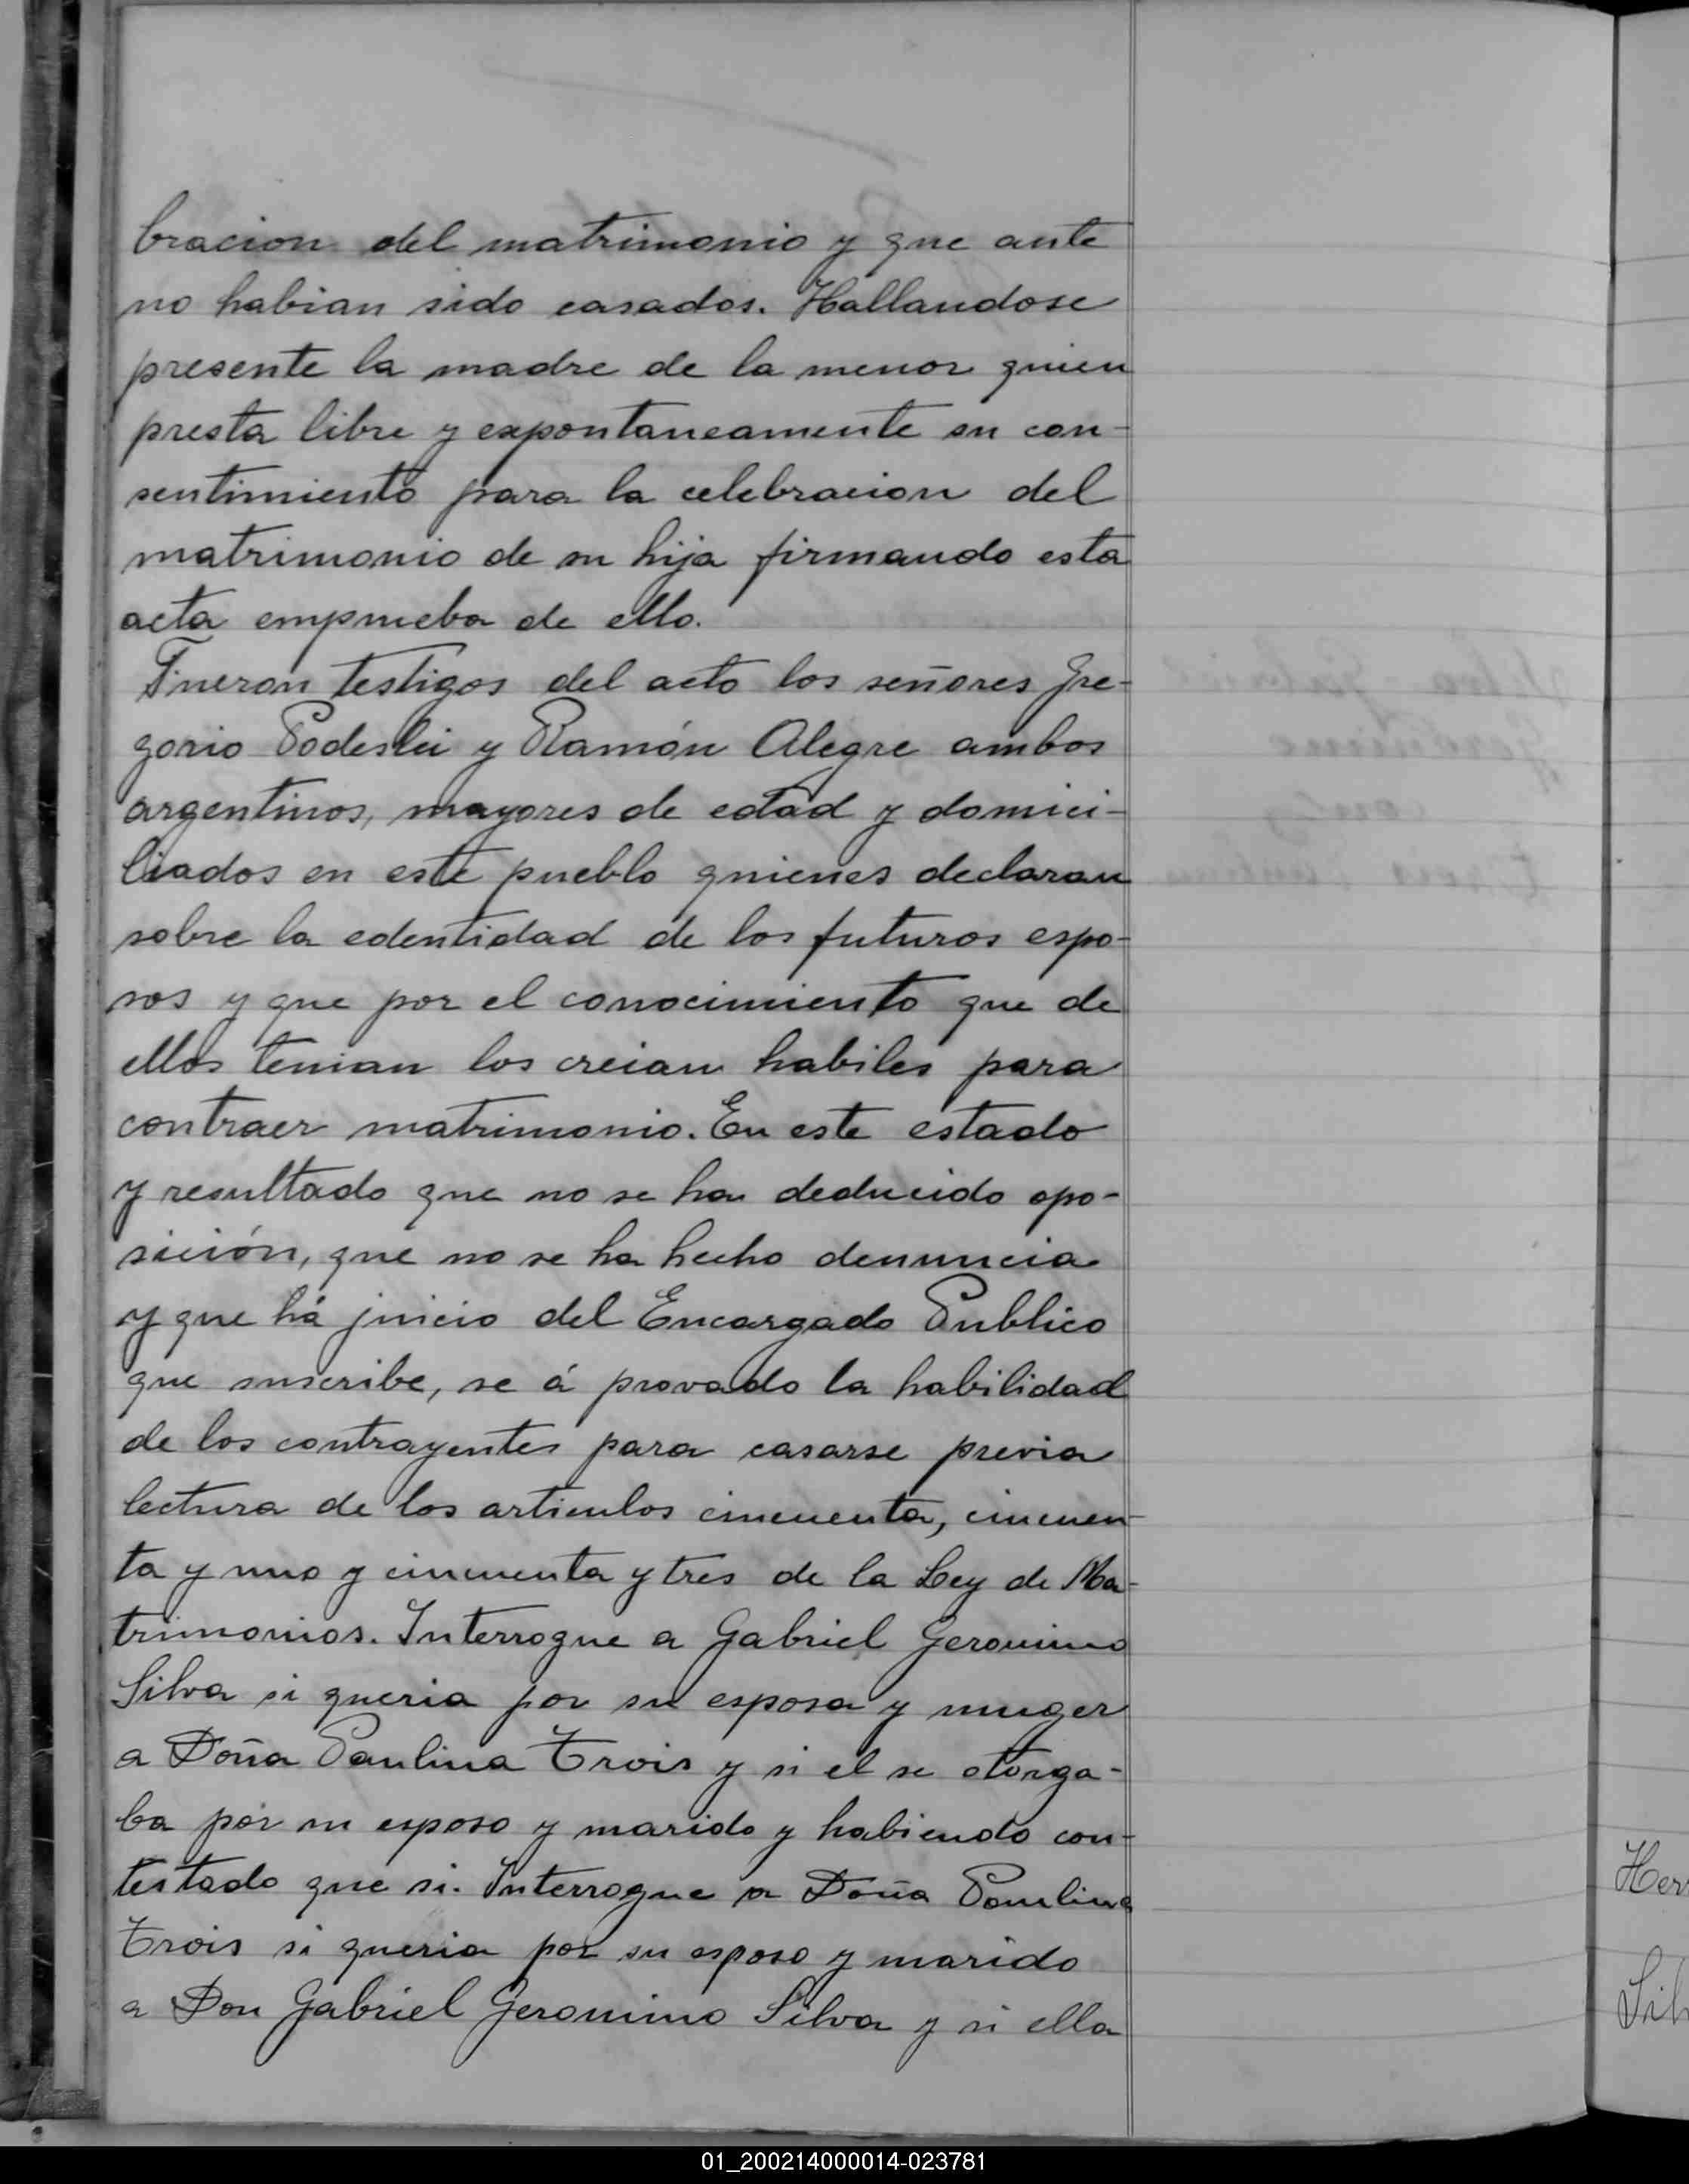 bracion del matrimonio y que ante
no habian sido casados. Hallandose
presente la madre de la menor quien
presta libre y expontaneamente su con-
sentimiento para la celebracion del
matrimonio de su hija firmando esta
acta emprueba de ello.
Fueron testigos del acto los señores Gre-
gorio y Ramón Alegre ambos
argentinos, mayores de edad y domici-
liados en este pueblo quienes declaran
sobre la edentidad de los futuros espo-
sos y que por el conocimiento que de
ellos tenian los creian habiles para
contraer matrimonio. En este estado
y resultado que no se ha deducido opo-
sición, que no se ha hecho denuncia
y que há juicio del Encargado Publico
que suscribe, se á provado la habilidad
de los contrayentes para casarse previa
lectura de los articulos cincuenta, cincuen-
ta y uno y cincuenta y tres de la Ley de Ma-
trimonios. Interrogue a Gabriel Geronimo
Silva si queria por su esposa y muger
a Doña Paulina Trois y si el se otorga-
ba por su esposo y marido y habiendo con-
testado que si. Interrogue a Doña Paulina
Trois si queria por su esposo y marido
a Don Gabriel Geronimo Silva y si ella
Her
Sil
01_200214000014-023781